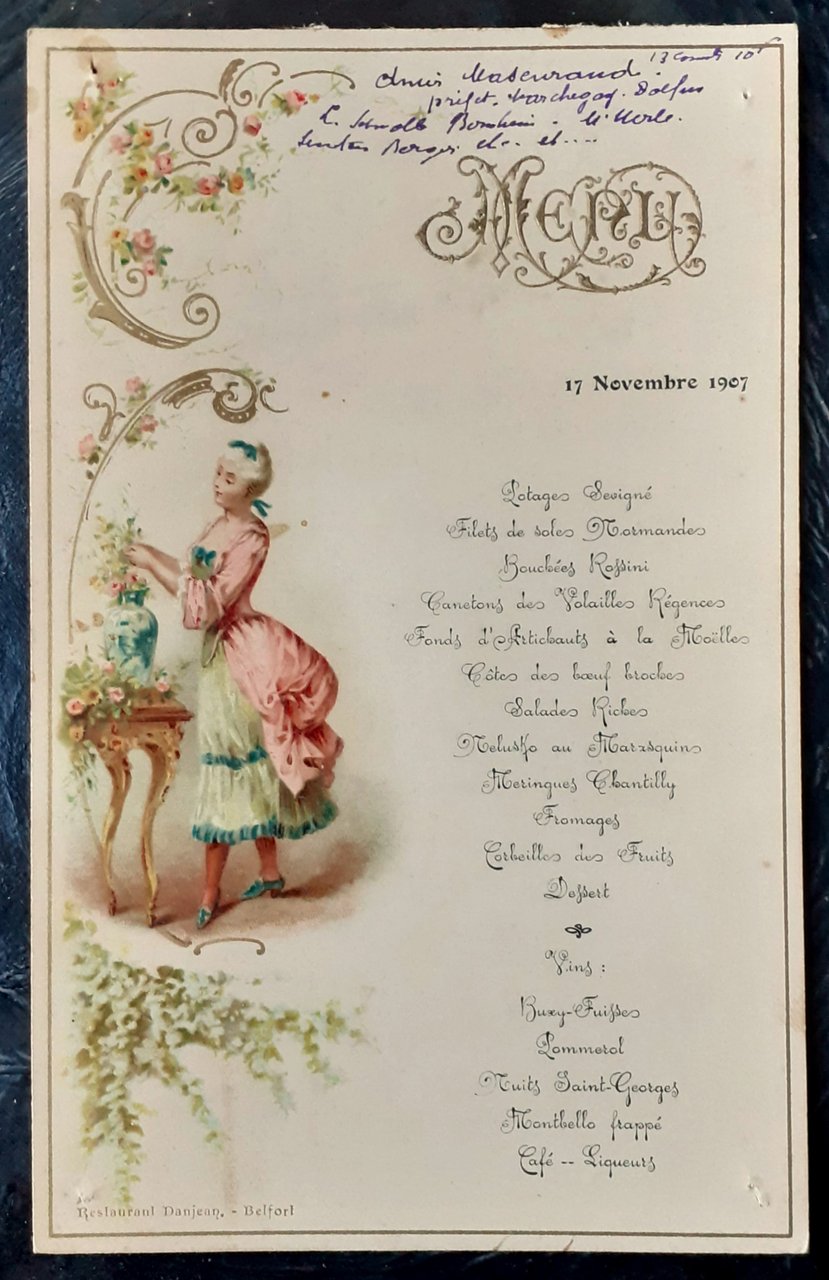 13 10f
préfet. Marchegay. Dolfus
Berger etc. et....
Menu
17 Novembre 1907
Potages Sevigné
Filets de soles Normandes
Bouchées Rossini
Canetons des Volailles Régences
Fonds d'Artichauts à la Moëlles
Côtes des bœuf broches
Salades Riches
Nelusko au Marasquins
Meringues Chantilly
Fromages
Corbeilles des Fruits
Dessert
Vins :
Buxy-Fuisses
Pommerol
Nuits Saint-Georges
Montbello frappé
Café -- Liqueurs
Restaurant Danjean. - Belfort